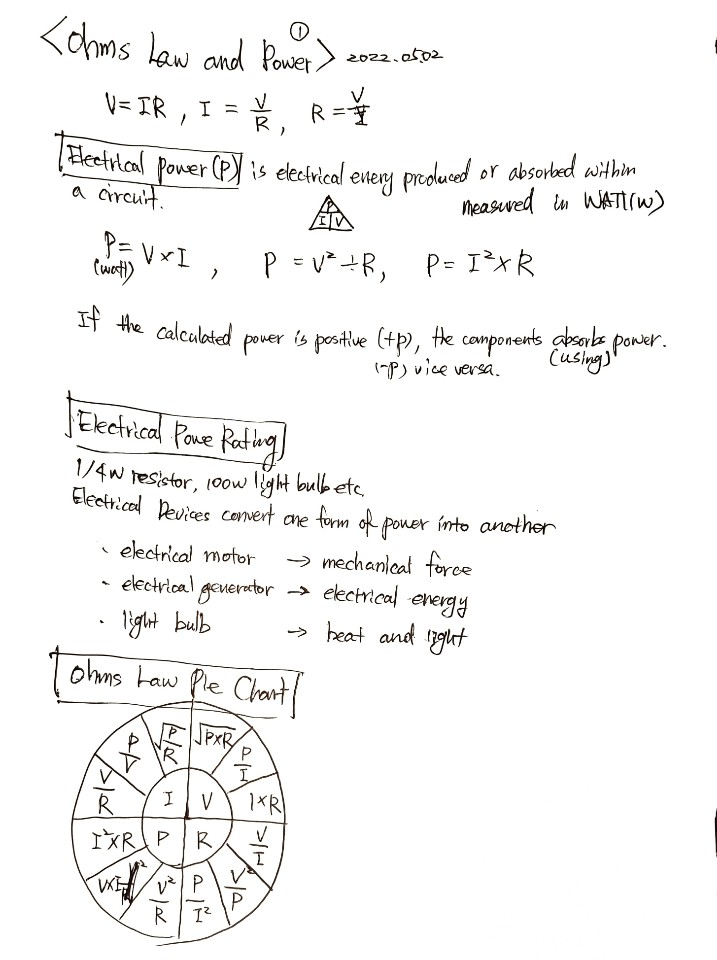 ①
<Ohms Law and Power> 2022.05.02
V=IR , I = V/R , R = V/I
Electrical power(P) is electrical enery produced or absorbed within
a circuit. measured in WATT(W)
P
I V
P= V×I , P = V²÷R, P= I²×R
(watt)
If the calculated power is positive (+p), the components absorbs power.
(using)
(-P) vice versa.
Electrical Powe Rating
1/4W resistor, 100W light bulb etc
Electrical Devices convert one form of power into another
· electrical motor → mechanical force
· electrical generator → electrical energy
· light bulb → heat and light
Ohms Law Pie Chart
√P/R √P×R
P/V P/I
V/R I V I×R
I²×R P R V/I
V×I V²/R P/I² V²/P